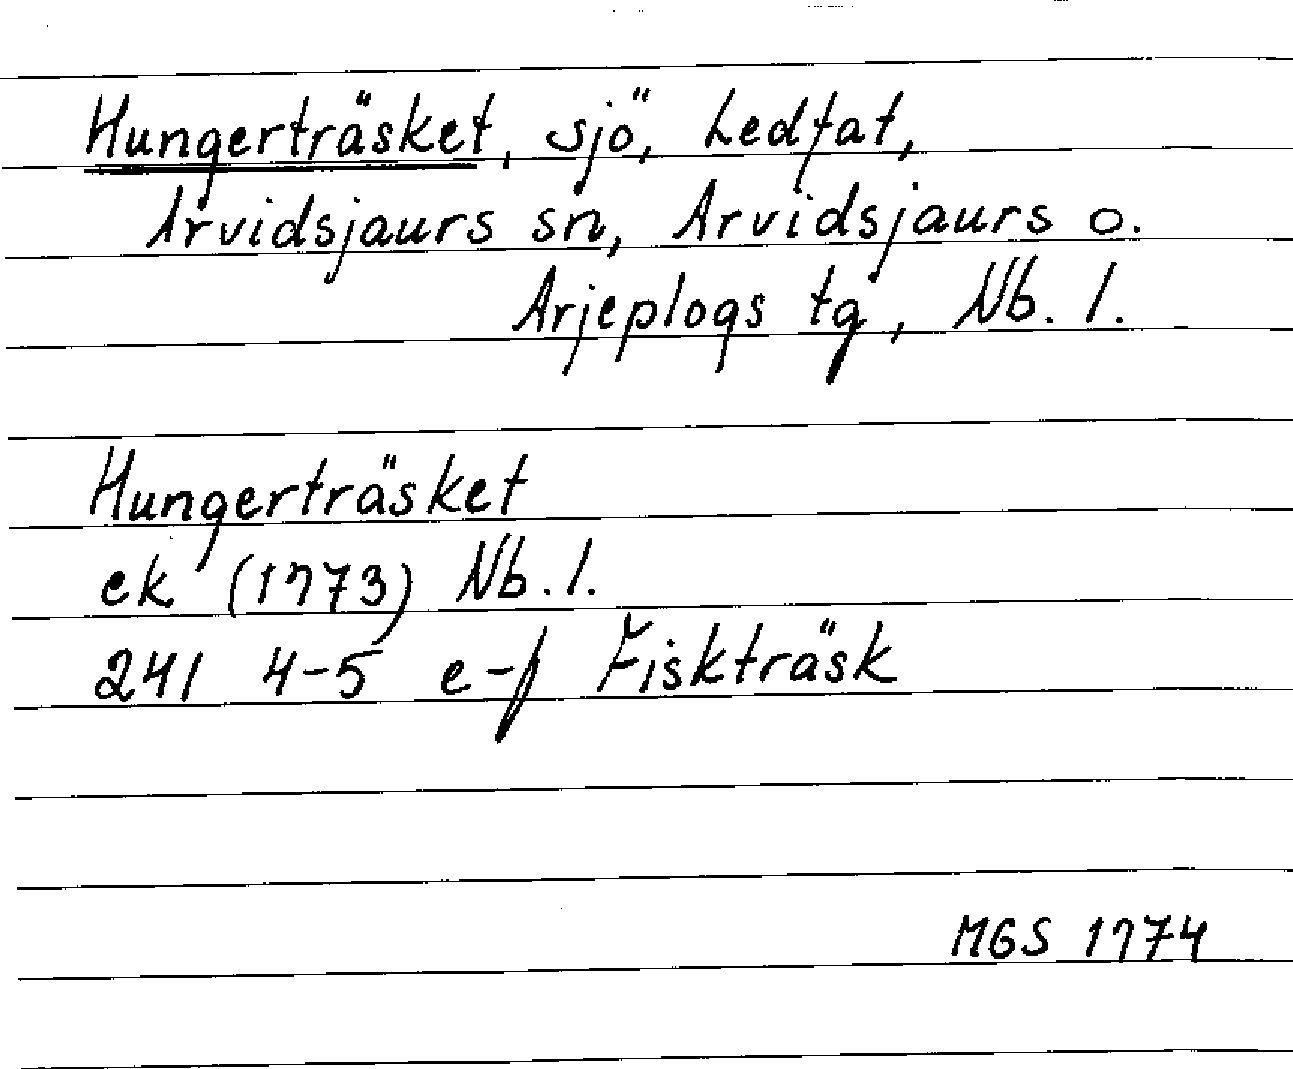 Hungerträsket, sjö, Ledfat,
Arvidsjaurs sn, Arvidsjaurs o.
Arjeplogs tg, Nb. l.
Hungerträsket
ek (1973) Nb. l.
24I 4-5 e-f Fiskträsk
MGS 1974